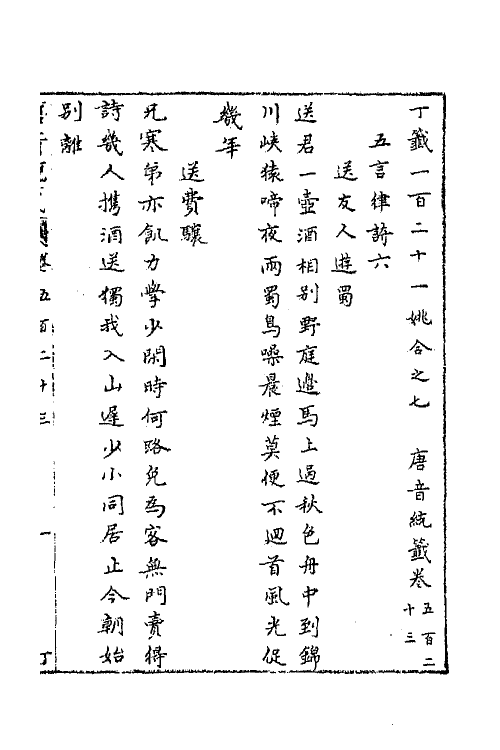 丁籤一百二十一姚合之七　唐音統籤卷五百二十三
五言律詩六
送友人遊蜀
送君一壺酒相別野庭邊馬上過秋色舟中到錦
川峽猿啼夜雨蜀鳥噪晨煙莫便不迴首風光促
幾年
送費驤
兄寒弟亦飢力學少閑時何路免為客無門賣得
詩幾人攜酒送獨我入山遲少小同居止今朝始
別離
卷五百二十三　一　丁